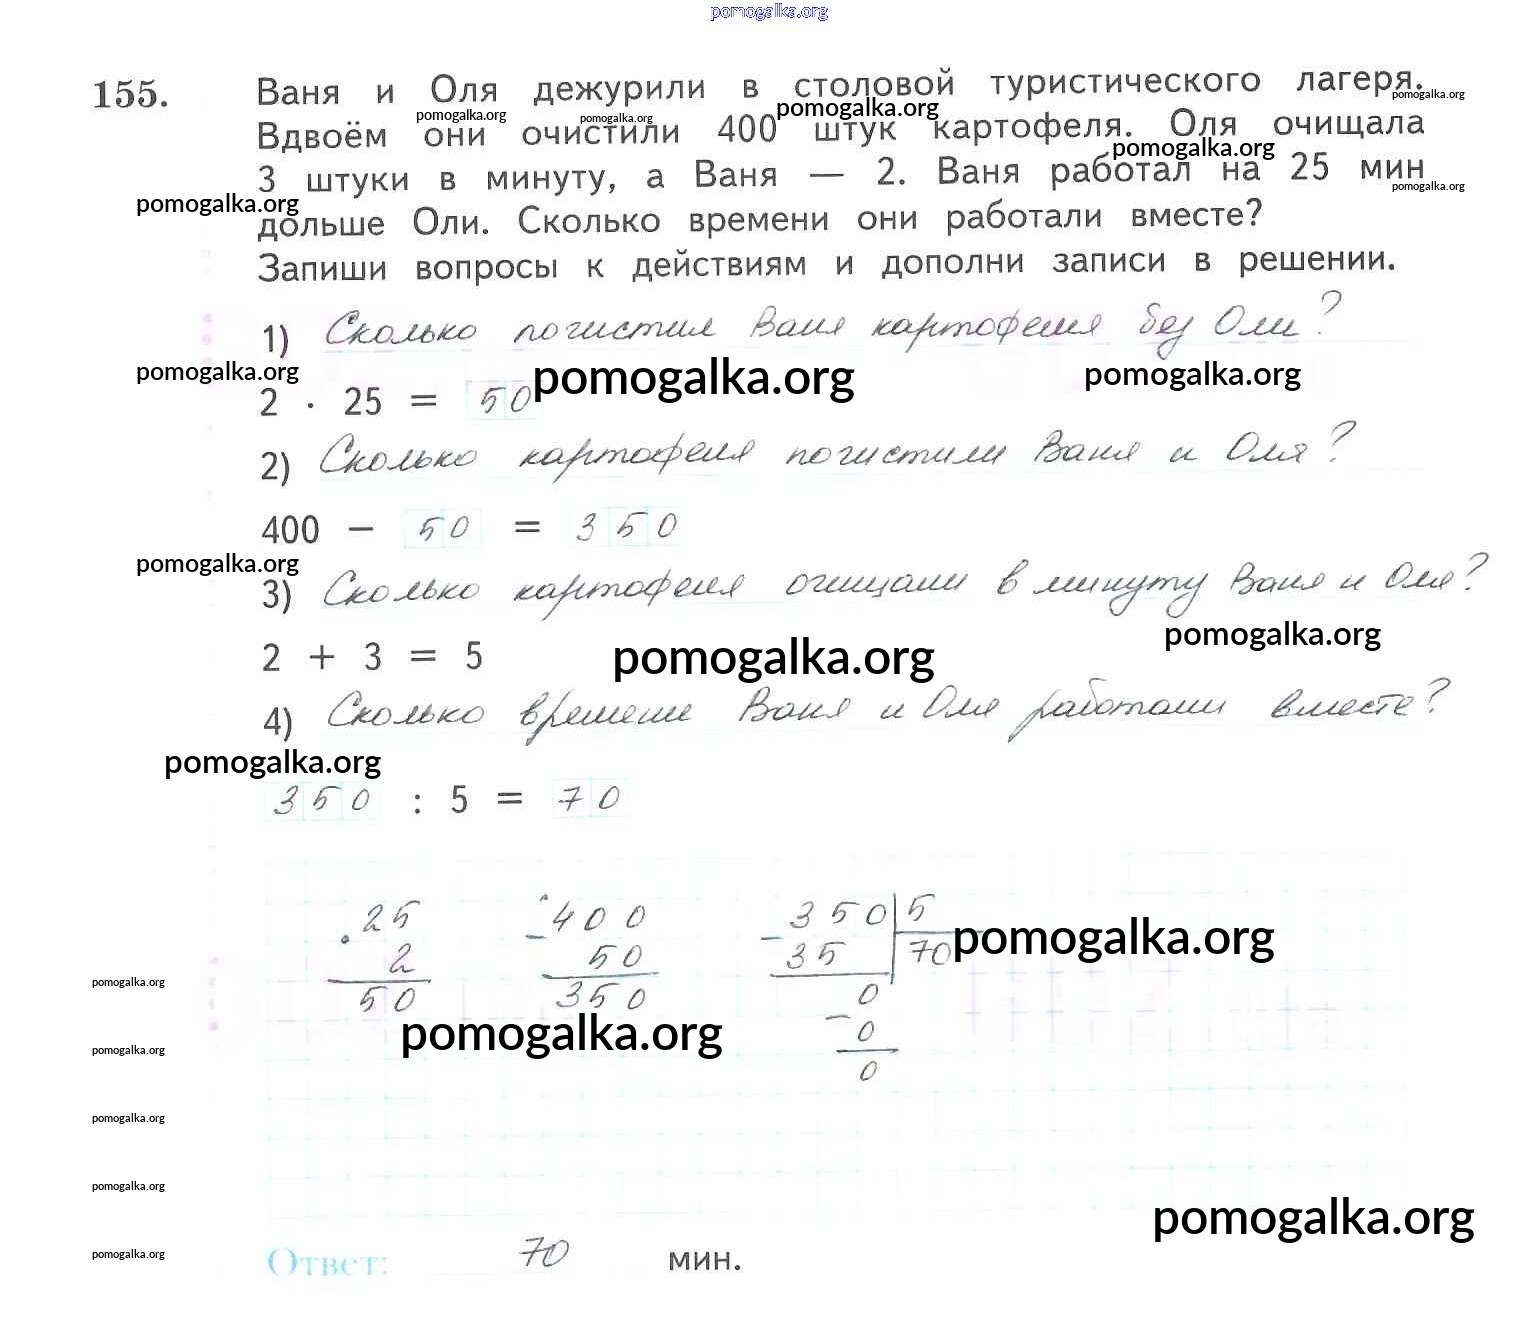 pomogalka.org
155. Ваня и Оля дежурили в столовой туристического лагеря.
pomogalka.org pomogalka.org pomogalka.org pomogalka.org
Вдвоём они очистили 400 штук картофеля. Оля очищала
pomogalka.org
3 штуки в минуту, а Ваня — 2. Ваня работал на 25 мин
pomogalka.org pomogalka.org
дольше Оли. Сколько времени они работали вместе?
Запиши вопросы к действиям и дополни записи в решении.
1) Сколько почистил Ваня картофеля без Оли?
pomogalka.org pomogalka.org pomogalka.org
2 · 25 = 50
2) Сколько картофеля почистили Ваня и Оля?
400 − 50 = 350
pomogalka.org
3) Сколько картофеля очищали в минуту Ваня и Оля?
pomogalka.org
2 + 3 = 5
pomogalka.org
4) Сколько времени Ваня и Оля работали вместе?
pomogalka.org
350 : 5 = 70
25 400 350 5
· 2 − 50 − 35 70
50 350 0
− 0
0
pomogalka.org
pomogalka.org
pomogalka.org
pomogalka.org
pomogalka.org
pomogalka.org
pomogalka.org
Ответ: 70 мин.
pomogalka.org